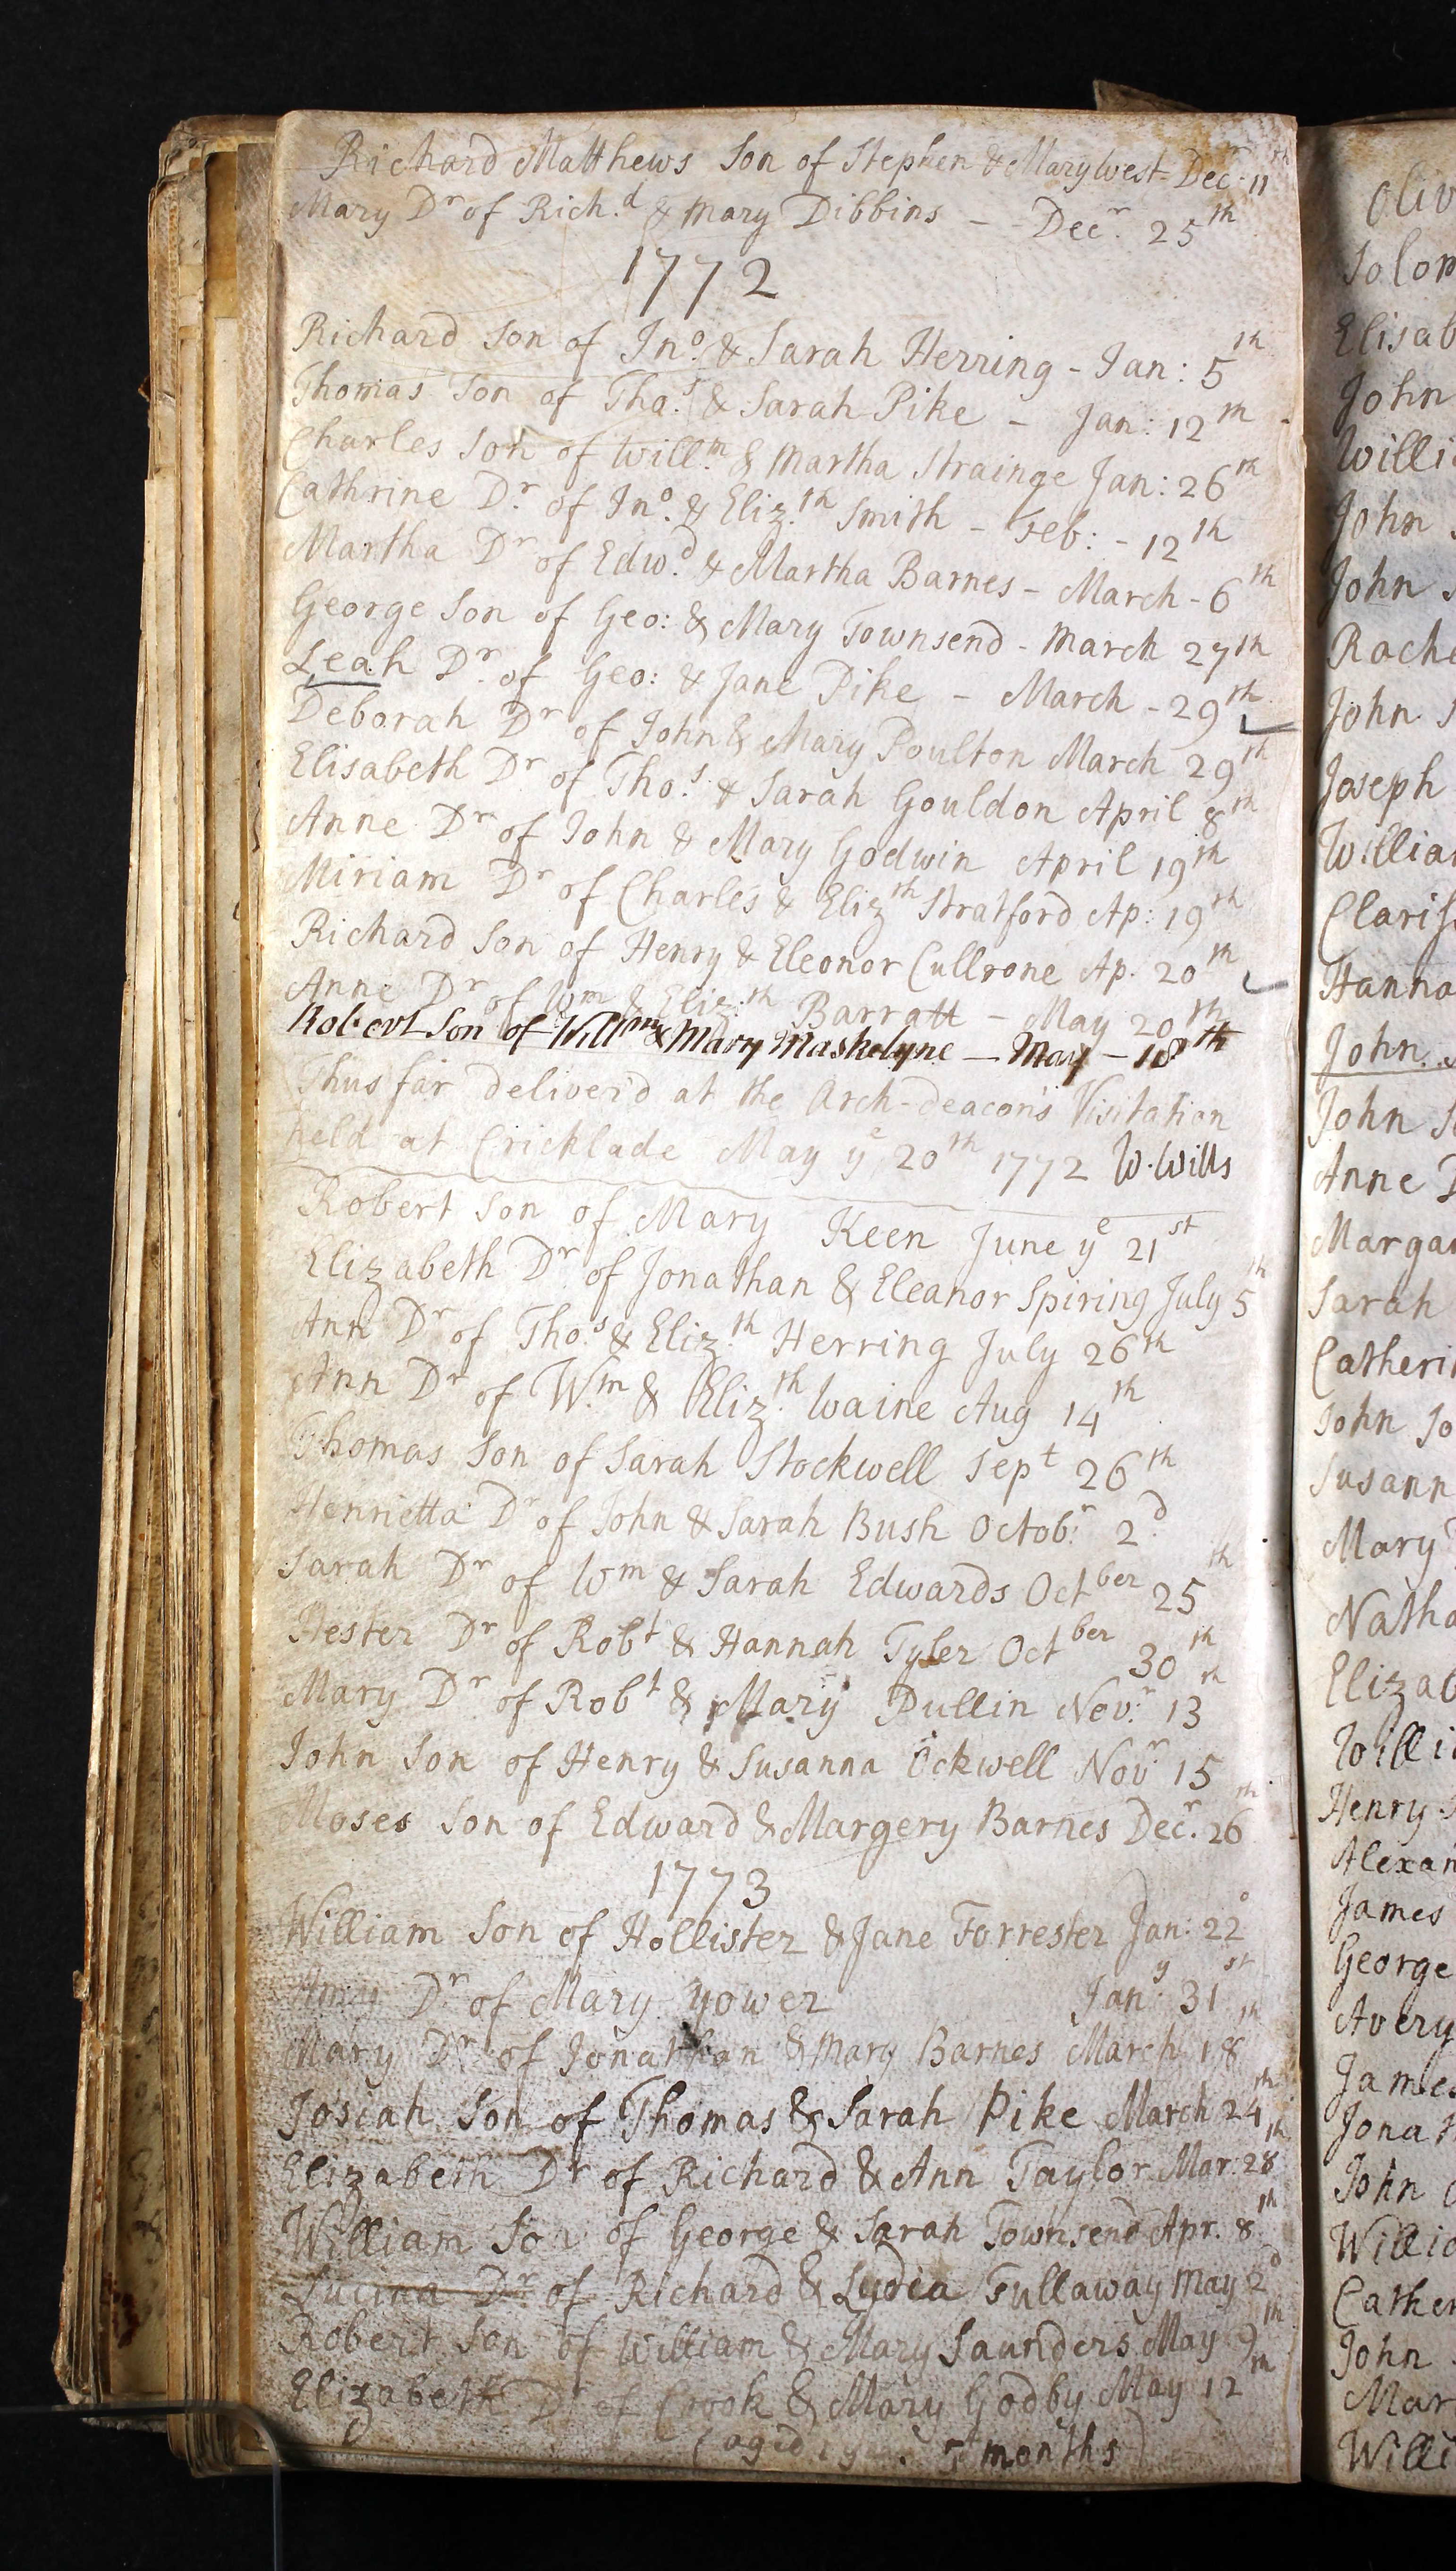 Richard Matthews Son of Stephen & Mary West Decr. 11th
Mary Dr of Rich.d & Mary Dibbins - Decr. 25th
1772
Richard Son of Jno. & Sarah Herring - Jan: 5th
Thomas Son of Tho.s & Sarah Pike - Jan: 12th
Charles Son of Will.m & Martha Strainge Jan: 26th
Cathrine Dr. of Jno. & Eliz.th Smith - Feb: - 12th
Martha Dr of Edw.d & Martha Barnes - March - 6th
George Son of Geo: & Mary Townsend - March 27th
Leah Dr. of Geo: & Jane Pike - March - 29th
Deborah Dr of John & Mary Poulton March 29th
Elisabeth Dr of Tho.s & Sarah Gouldon April 8th
Anne Dr of John & Mary Godwin April 19th
Miriam Dr of Charles & Elizth Stratford Ap: 19th
Richard Son of Henry & Eleonor Cullrone Ap. 20th
Anne Dr of Wm & Eliz.th Barratt - May 20th
Robert Son of Willm & Mary Maskelyne - May - 18th
Thus far deliver'd at the Arch-deacon's Visitation
held at Cricklade May ye 20th 1772 W. Wills
Robert Son of Mary Keen June ye 21st
Elizabeth Dr. of Jonathan & Eleanor Spiring July 5th
Ann Dr of Tho.s & Eliz.th Herring July 26th
Ann Dr of W.m & Eliz.th Waine Aug 14th
Thomas Son of Sarah Stockwell Sept 26th
Henrietta Dr of John & Sarah Bush Octob.r 2d
Sarah Dr of Wm & Sarah Edwards Octber 25th
Hester Dr of Robt & Hannah Tyler Octber 30th
Mary Dr of Robt & Mary Pullin Nov.r 13th
John Son of Henry & Susanna Ockwell Novr. 15
Moses Son of Edward & Margery Barnes Decr. 26th
1773
William Son of Hollister & Jane Forrester Jan: 22d
Dr of Mary Yower Jan.y 31st
Mary Dr of Jonathan & Mary Barnes March 18th
Josiah Son of Thomas & Sarah Pike March 24th
Elizabeth Dr of Richard & Ann Taylor Mar. 28th
William Son of George & Sarah Townsend Apr. 8th
Lucina Dr of Richard & Lydia Fullaway May 2d
Robert Son of William & Mary Saunders May 9th
Elizabeth Dr of Crook & Mary Godby May 12th
(aged 1 5 months)
Oliv
Solom
Elisab
John
Willi
John
John
Rache
John
Joseph
Willia
Claris
Hanna
John
John
Anne
Margar
Sarah
Catheri
John So
Susann
Mary
Natha
Elizab
Willi
Henry
Alexan
James
George
Avery
James
Jonat
John
Willia
Cather
John
Mar
Willi